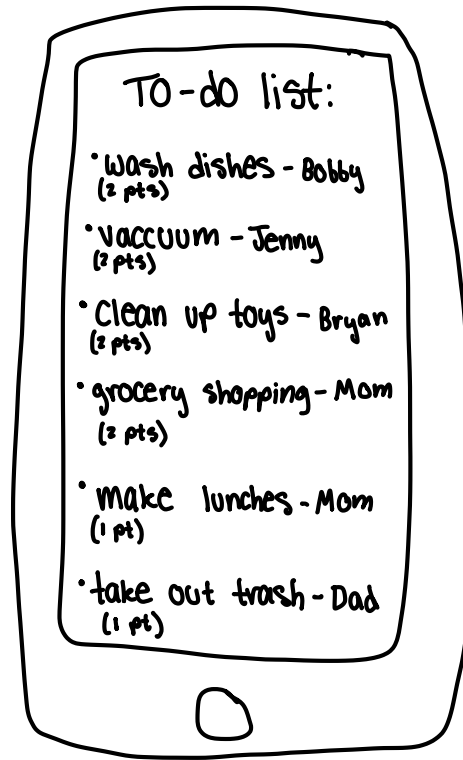 To-do list:
• wash dishes - Bobby
(2 pts)
• vaccuum - Jenny
(2 pts)
• clean up toys - Bryan
(2 pts)
• grocery shopping - Mom
(2 pts)
• make lunches - Mom
(1 pt)
• take out trash - Dad
(1 pt)